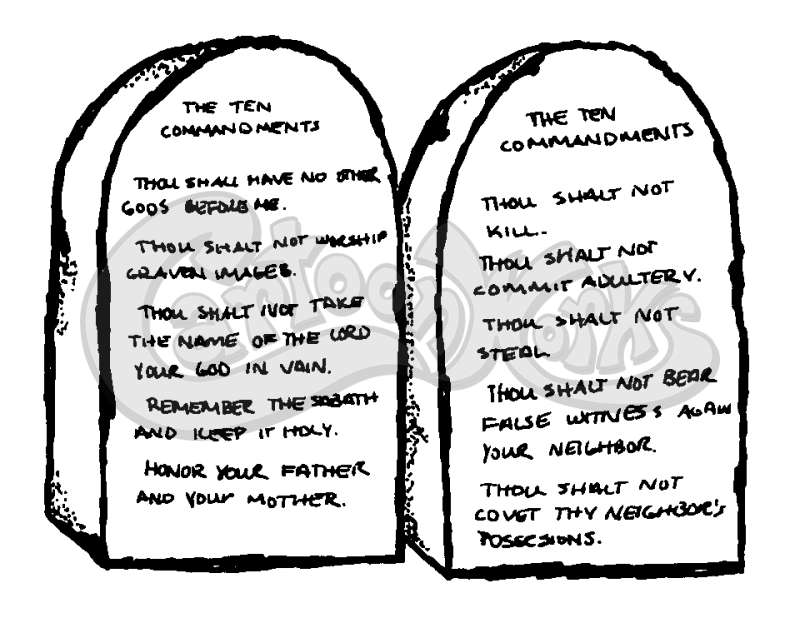 THE TEN
COMMANDMENTS
THOU SHALL HAVE NO OTHER
GODS BEFORE ME.
THOU SHALT NOT WORSHIP
GRAVEN IMAGES.
THOU SHALT NOT TAKE
THE NAME OF THE LORD
YOUR GOD IN VAIN.
REMEMBER THE SABATH
AND KEEP IT HOLY.
HONOR YOUR FATHER
AND YOUR MOTHER.
THE TEN
COMMANDMENTS
THOU SHALT NOT
KILL.
THOU SHALT NOT
COMMIT ADULTERY.
THOU SHALT NOT
STEAL
THOU SHALT NOT BEAR
FALSE WITNESS AGAIN
YOUR NEIGHBOR.
THOU SHALT NOT
COVET THY NEIGHBOR'S
POSECSIONS.
CartoonWorks